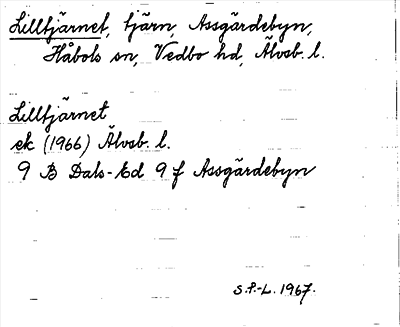 Lilltjärnet, tjärn, Assgärdebyn,
Håbols sn, Vedbo hd, Älvsb. l.
Lilltjärnet
ek (1966) Älvsb. l.
9 B Dals-Ed 9 f Assgärdebyn
S.F.-L. 1967.